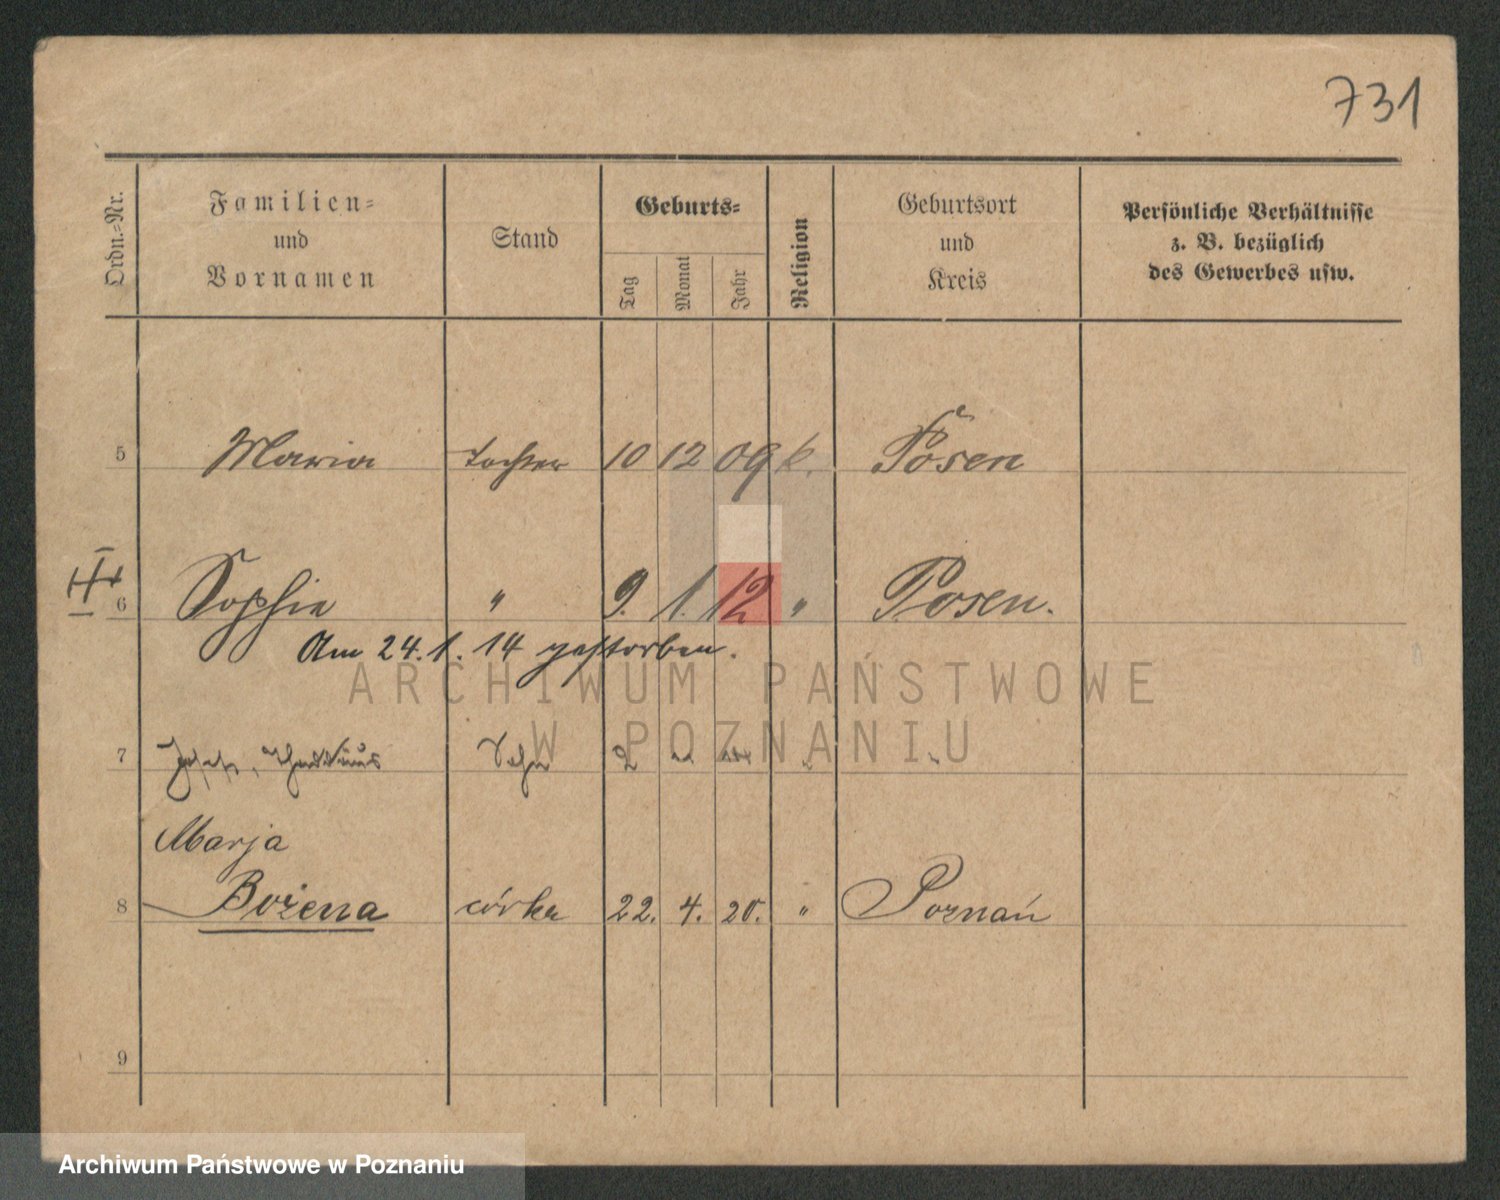 731
Ordn.-Nr.
Familien-
und
Vornamen
Stand
Geburts-
Tag
Monat
Jahr
Religion
Geburtsort
und
Kreis
Persönliche Verhältnisse
z. B. bezüglich
des Gewerbes usw.
5 Maria Tochter 10 12 09 k. Posen
6 Sophie " 9. 1. 12 " Posen.
Am 24.1.14 gestorben.
ARCHIWUM PAŃSTWOWE
W POZNANIU
7 Joseph, Thaddäus Sohn 2 "
Marja
8 Bożena córka 22. 4. 20. " Poznań
9
Archiwum Państwowe w Poznaniu